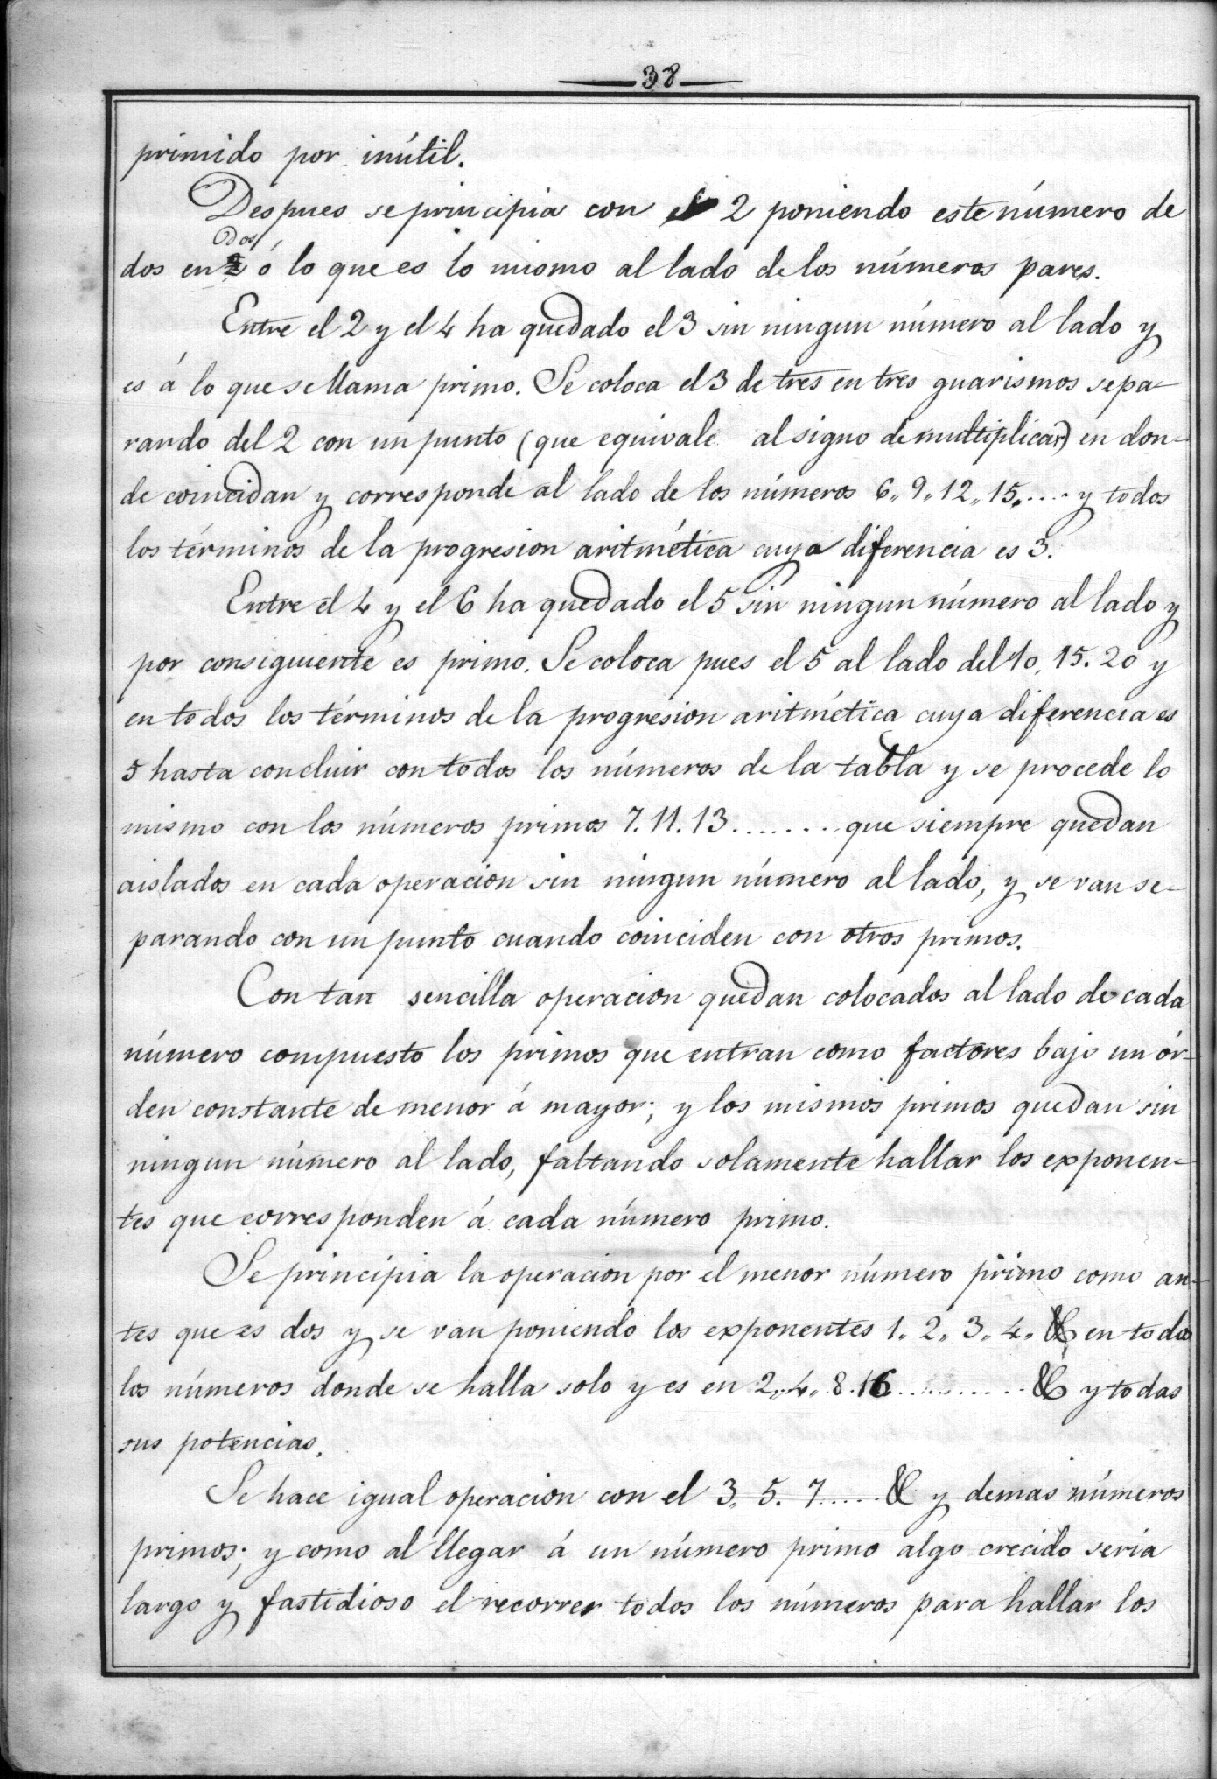 38
primido por inútil.
Despues se principia con el 2 poniendo este número de
dos
dos en 2 ó lo que es lo mismo al lado de los números pares.
Entre el 2 y el 4 ha quedado el 3 sin ningun número al lado y
es á lo que se llama primo. Se coloca el 3 de tres en tres guarismos sepa-
rando del 2 con un punto (que equivale al signo de multiplicar) en don-
de coincidan y corresponde al lado de los números 6,, 9,, 12,, 15,.... y todos
los términos de la progresion aritmética cuya diferencia es 3.
Entre el 4 y el 6 ha quedado el 5 sin ningun número al lado y
por consiguiente es primo. Se coloca pues el 5 al lado del 10, 15. 20 y
en todos los términos de la progresion aritmética cuya diferencia es
5 hasta concluir con todos los números de la tabla y se procede lo
mismo con los números primos 7. 11. 13........ que siempre quedan
aislados en cada operacion sin ningun número al lado, y se van se-
parando con un punto cuando coinciden con otros primos.
Con tan sencilla operacion quedan colocados al lado de cada
número compuesto los primos que entran como factores bajo un ór-
den constante de menor á mayor; y los mismos primos quedan sin
ningun número al lado, faltando solamente hallar los exponen-
tes que corresponden á cada número primo.
Se principia la operacion por el menor número primo como an-
tes que es dos y se van poniendo los exponentes 1. 2. 3. 4. &c en todos
los números donde se halla solo y es en 2,, 4,, 8. 16............ &c y todas
sus potencias.
Se hace igual operacion con el 3. 5. 7..... &c y demas números
primos; y como al llegar á un número primo algo crecido seria
largo y fastidioso el recorrer todos los números para hallar los